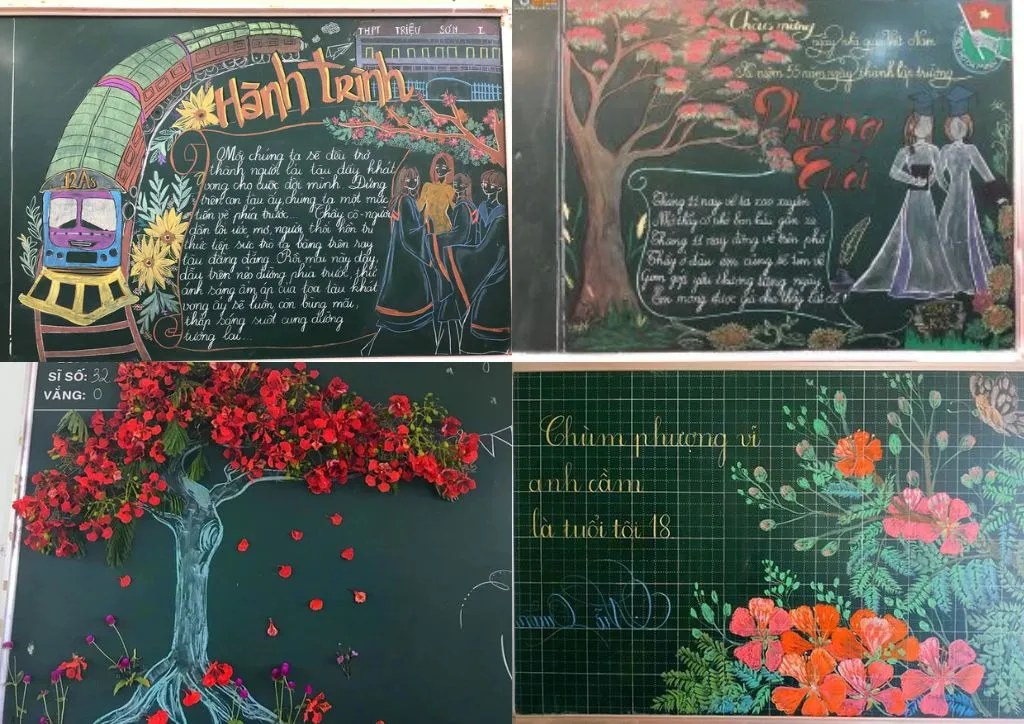 THPT TRIỆU SƠN I
Hành trình
12A5
Mỗi chúng ta sẽ đều trở
thành người lái tàu đầy khát
vọng cho cuộc đời mình. Đứng
trên con tàu ấy, chúng ta một mực
tiến về phía trước... Thầy cô - người
dẫn lối ước mơ, người thổi hồn tri
thức tiếp sức trở là bằng trên ray
tàu đằng đẵng. Rồi mai này đây,
dẫu trên nẻo đường phía trước, thứ
ánh sáng ấm áp của toa tàu khát
vọng ấy sẽ luôn còn bùng mãi,
thắp sáng suốt cung đường
tương lai...
Chào mừng
ngày nhà giáo Việt Nam
Kỉ niệm 55 năm ngày thành lập trường
Phượng
Cuối
Tháng 11 nay về lạ xao xuyến
thầy cô nhỏ bạn bấu gần xa
Tháng 11 nay đông về trên phố
Thầy ở đâu em cũng sẽ tìm về
gìn giữ yêu thương từng ngày
Em mong được già cho thầy
SĨ SỐ: 32
VẮNG: 0
Chùm phượng vĩ
anh cầm
là tuổi tôi 18